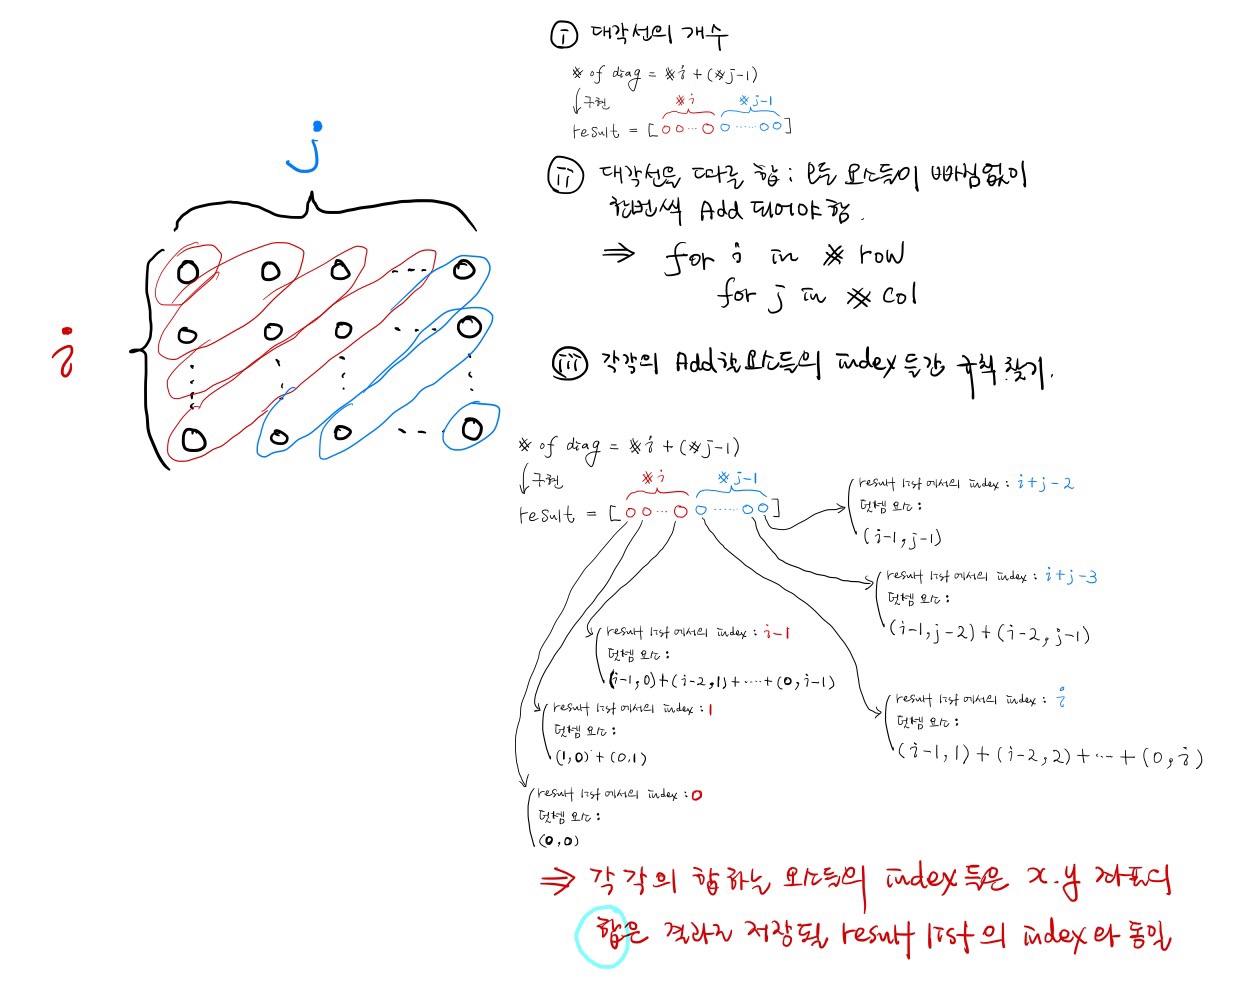 j
i
ⓘ 대각선의 개수
# of diag = #i + (#j-1)
↓구현
#i #j-1
result = [ o o ... o o ...... o o ]
ⅱ 대각선을 따른 합 : 모든 요소들이 빠짐없이
한번씩 Add 되어야 함.
⇒ for i in # row
for j in # col
ⅲ 각각의 Add한 요소들의 index 들간 규칙 찾기.
# of diag = #i + (#j-1)
↓구현
#i #j-1
result = [ o o ... o o ...... o o ]
result list 에서의 index : i+j-2
덧셈 요소 :
(i-1, j-1)
result list 에서의 index : i+j-3
덧셈 요소 :
(i-1, j-2) + (i-2, j-1)
result list 에서의 index : i-1
덧셈 요소 :
(i-1, 0) + (i-2, 1) + ... + (0, i-1)
result list 에서의 index : i
덧셈 요소 :
(i-1, 1) + (i-2, 2) + ... + (0, i)
result list 에서의 index : 1
덧셈 요소 :
(1, 0) + (0, 1)
result list 에서의 index : 0
덧셈 요소 :
(0, 0)
⇒ 각각의 합하는 요소들의 index 들은 x.y 좌표의
합은 결과로 저장될 result list 의 index 와 동일